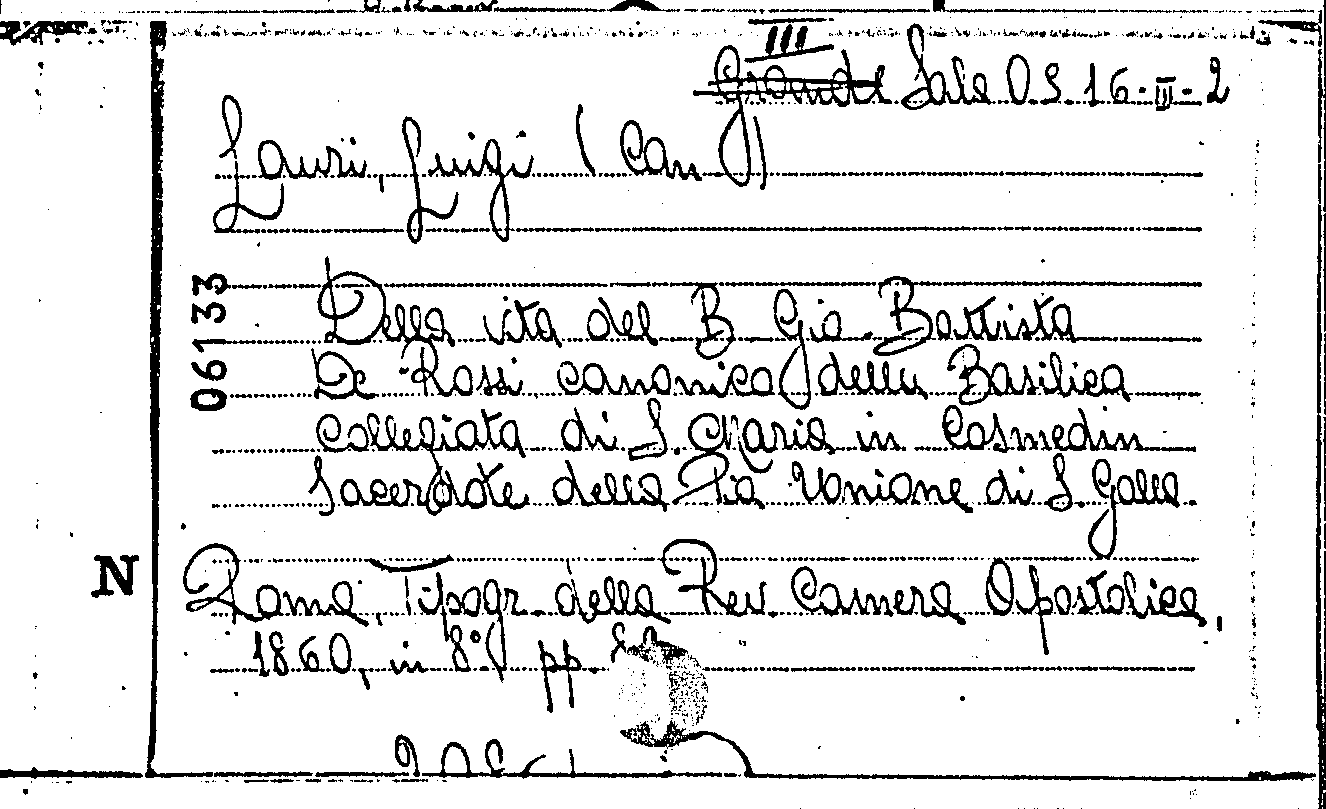 III
Grande Sala O S 16-III-2
Lauri, Luigi (Can.)
061333
Della vita del B Gio. Battista
De Rossi canonico della Basilica
collegiata di S. Maria in Cosmedin
Sacerdote della Pia Unione di S. Galla.
N
Roma, Tipogr. della Rev. Camera Apostolica,
1860, in 8° pp.